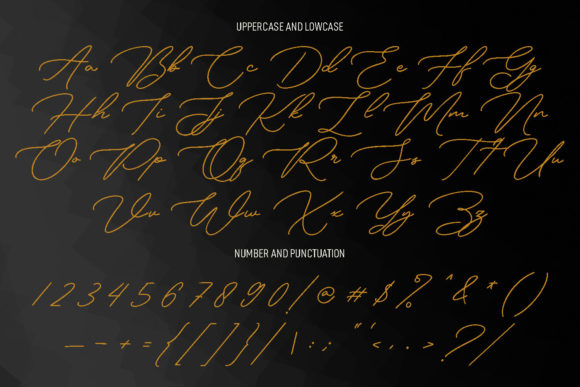 UPPERCASE AND LOWCASE
Aa Bb Cc Dd Ee Ff Gg
Hh Ii Jj Kk Ll Mm Nn
Oo Pp Qq Rr Ss Tt Uu
Vv Ww Xx Yy Zz
NUMBER AND PUNCTUATION
1 2 3 4 5 6 7 8 9 0 ! @ # $ % ^ & * ( )
_ - + = { [ ] } / \ | : ; " ' < , . > ? /